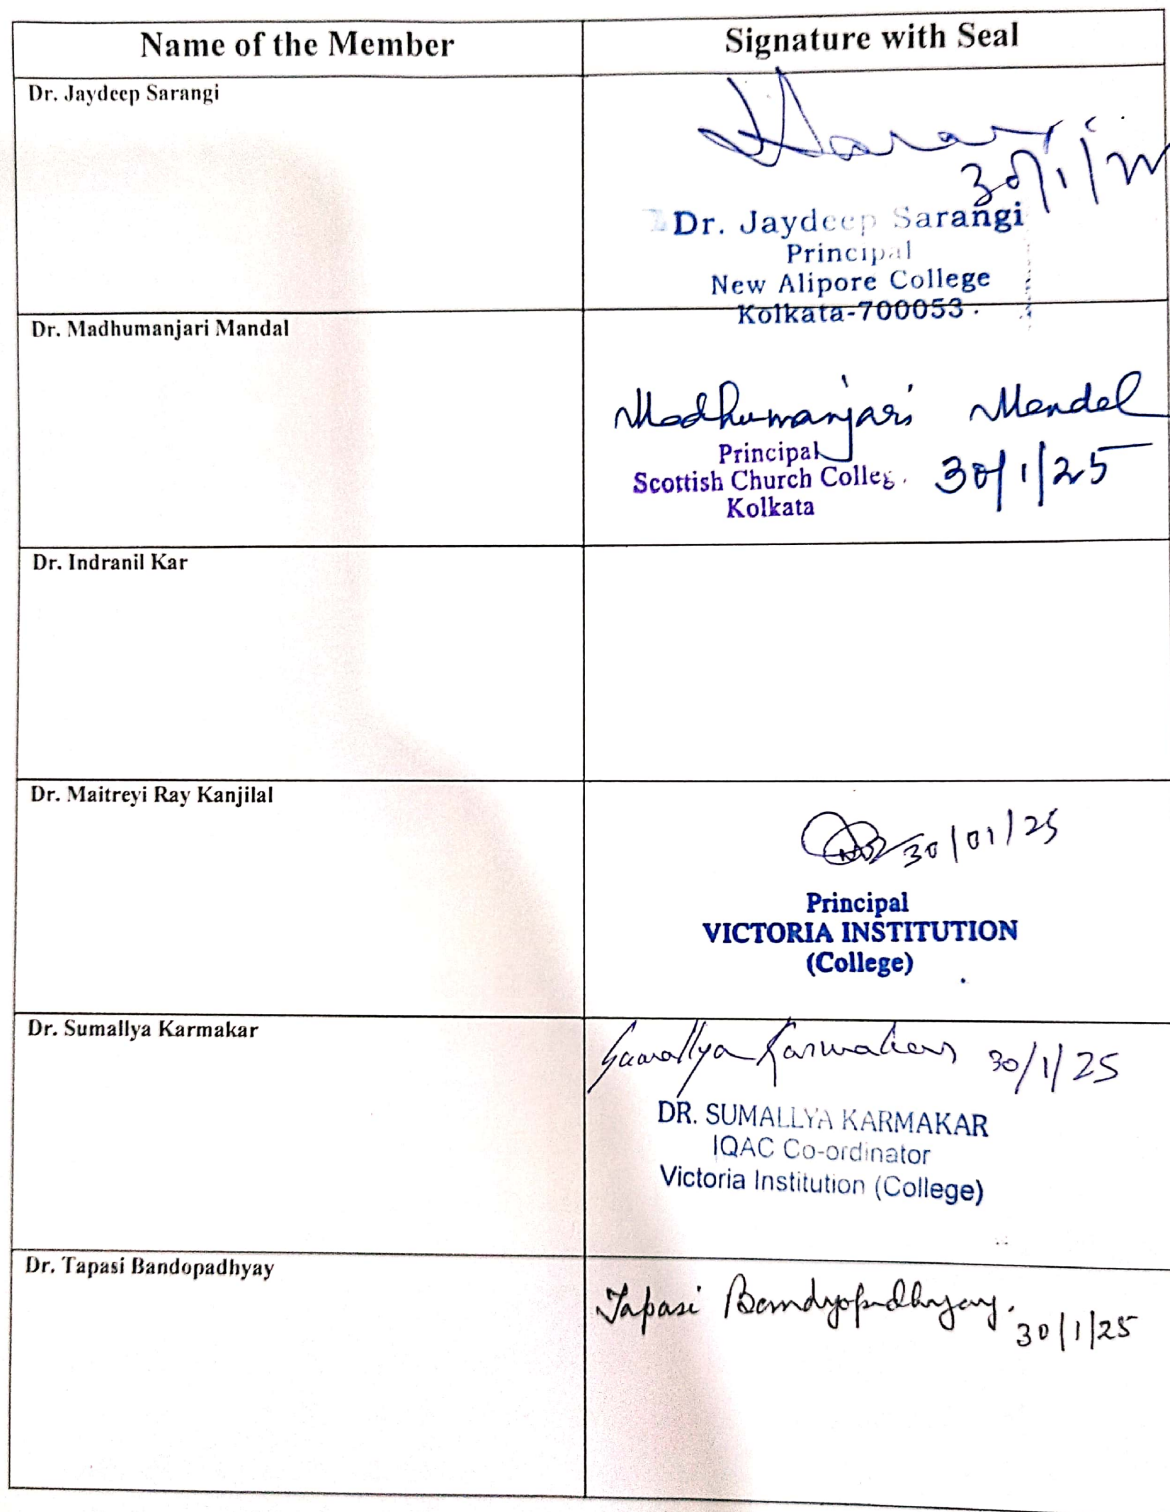 Name of the Member
Signature with Seal
Dr. Jaydeep Sarangi
30/1/
Dr. Jaydeep Sarangi
Principal
New Alipore College
Kolkata-700053
Dr. Madhumanjari Mandal
Madhumanjari Mandal
Principal
Scottish Church Colleg
30/1/25
Kolkata
Dr. Indranil Kar
Dr. Maitreyi Ray Kanjilal
30/01/25
Principal
VICTORIA INSTITUTION
(College)
Dr. Sumallya Karmakar
Sumallya Karmakar 30/1/25
DR. SUMALLYA KARMAKAR
IQAC Co-ordinator
Victoria Institution (College)
Dr. Tapasi Bandopadhyay
Tapasi Bandyopadhyay.
30/1/25